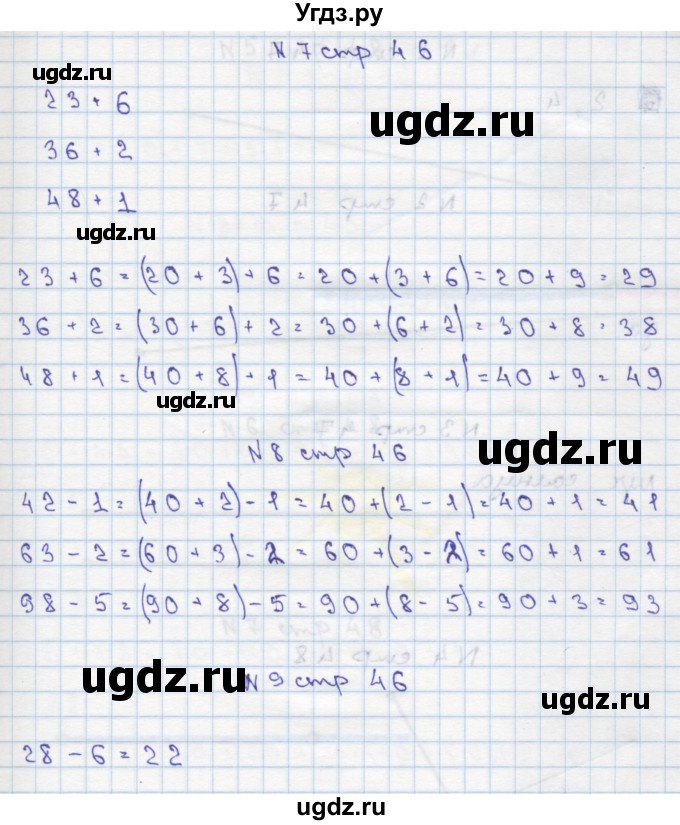 Угдз.ру
N 7 стр 46
ugdz.ru
23 + 6
ugdz.ru
36 + 2
48 + 1
ugdz.ru
23 + 6 = (20 + 3) + 6 = 20 + (3 + 6) = 20 + 9 = 29
36 + 2 = (30 + 6) + 2 = 30 + (6 + 2) = 30 + 8 = 38
48 + 1 = (40 + 8) + 1 = 40 + (8 + 1) = 40 + 9 = 49
ugdz.ru
N 8 стр 46
ugdz.ru
42 - 1 = (40 + 2) - 1 = 40 + (2 - 1) = 40 + 1 = 41
63 - 2 = (60 + 3) - 2 = 60 + (3 - 2) = 60 + 1 = 61
98 - 5 = (90 + 8) - 5 = 90 + (8 - 5) = 90 + 3 = 93
ugdz.ru
N 9 стр 46
ugdz.ru
28 - 6 = 22
ugdz.ru